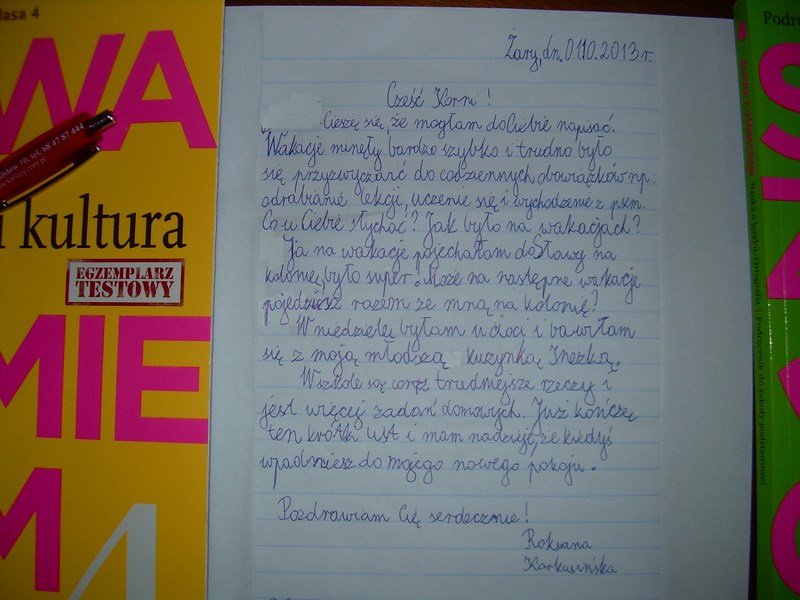 lasa 4
WA
i kultura
EGZEMPLARZ
TESTOWY
MIE
M
4
tel. 68 47 87 444
Żary, dn. 01.10.2013 r.
Cześć Korni!
Cieszę się, że mogłam do Ciebie napisać.
Wakacje minęły bardzo szybko i trudno było
się przyzwyczaić do codziennych obowiązków np.
odrabianie lekcji, uczenie się i wychodzenie z psem.
Co u Ciebie słychać? Jak było na wakacjach?
Ja na wakacje pojechałam do Sławy na
kolonie, było super. Może na następne wakacje
pojedziesz razem ze mną na kolonię?
W niedzielę byłam u cioci i bawiłam
się z moją młodszą kuzynką Inezką.
W szkole są coraz trudniejsze rzeczy i
jest więcej zadań domowych. Już kończę
ten krótki list i mam nadzieję, że kiedyś
wpadniesz do mojego nowego pokoju.
Pozdrawiam Cię serdecznie!
Roksana
Podrę
Nauka o języku i ortografia
Podręcznik do szkoły podstawowej